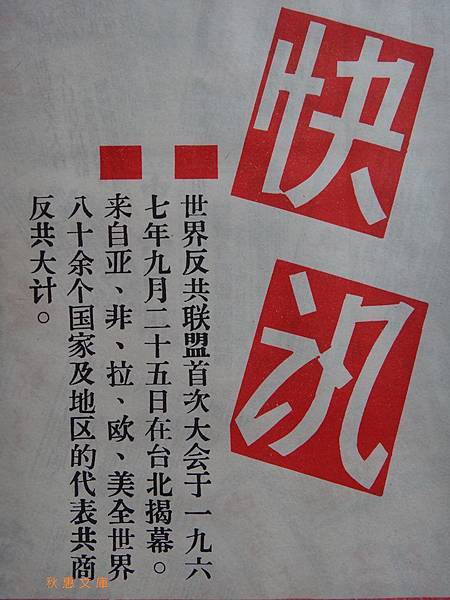 快讯
世界反共联盟首次大会于一九六
七年九月二十五日在台北揭幕。
来自亚、非、拉、欧、美全世界
八十余个国家及地区的代表共商
反共大计。
秋惠文庫